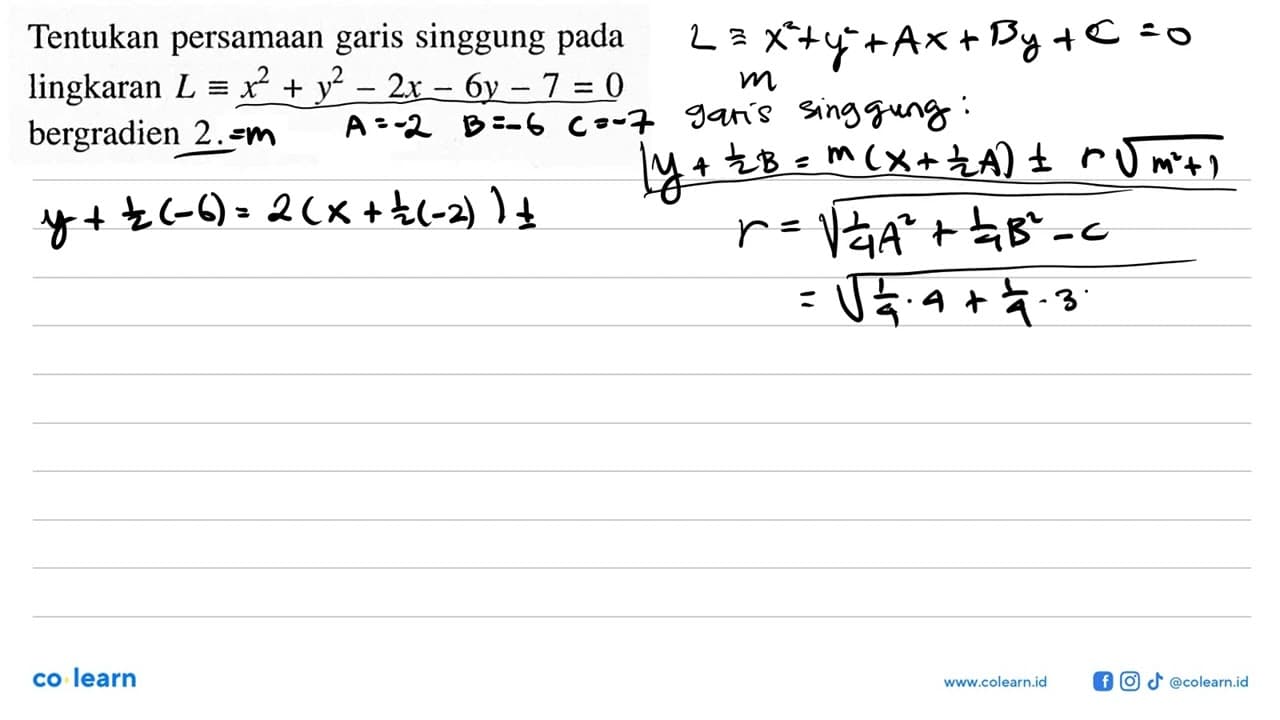 Tentukan persamaan garis singgung pada
lingkaran L ≡ x² + y² − 2x − 6y − 7 = 0
bergradien 2. =m
A = -2 B = -6 C = -7
L ≡ x² + y² + Ax + By + C = 0
m
garis singgung :
y + ½B = m(x + ½A) ± r√(m²+1)
r = √(¼A² + ¼B² - C)
= √(¼ · 4 + ¼ · 3
y + ½(-6) = 2(x + ½(-2)) ±
co learn
www.colearn.id
@colearn.id